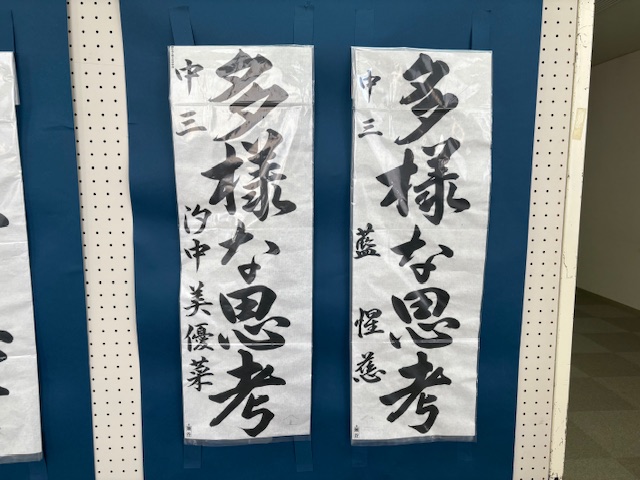 多様な思考
中三 藍 惺慈
多様な思考
中三 汐中美優菜